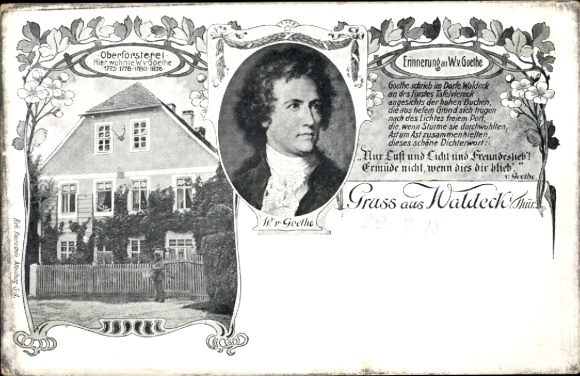 Oberförsterei
Hier wohnte W. v. Goethe
1775·1776·1780·1826
W. v. Goethe
Erinnerung an W. v. Goethe
Goethe schrieb im Dorfe Waldeck
an des Fürstes Tafelviereck
angesichts der hohen Buchen,
die aus tiefem Grund sich trugen
nach des Lichtes freiem Port,
die, wenn Stürme sie durchwühlten,
Ast um Ast zusammenhielten,
dieses schöne Dichterwort:
„Nur Luft und Licht und Freundeslieb'!
Ermüde nicht, wenn dies dir blieb."
v. Goethe.
Gruss aus Waldeck Thür.
22 7 18